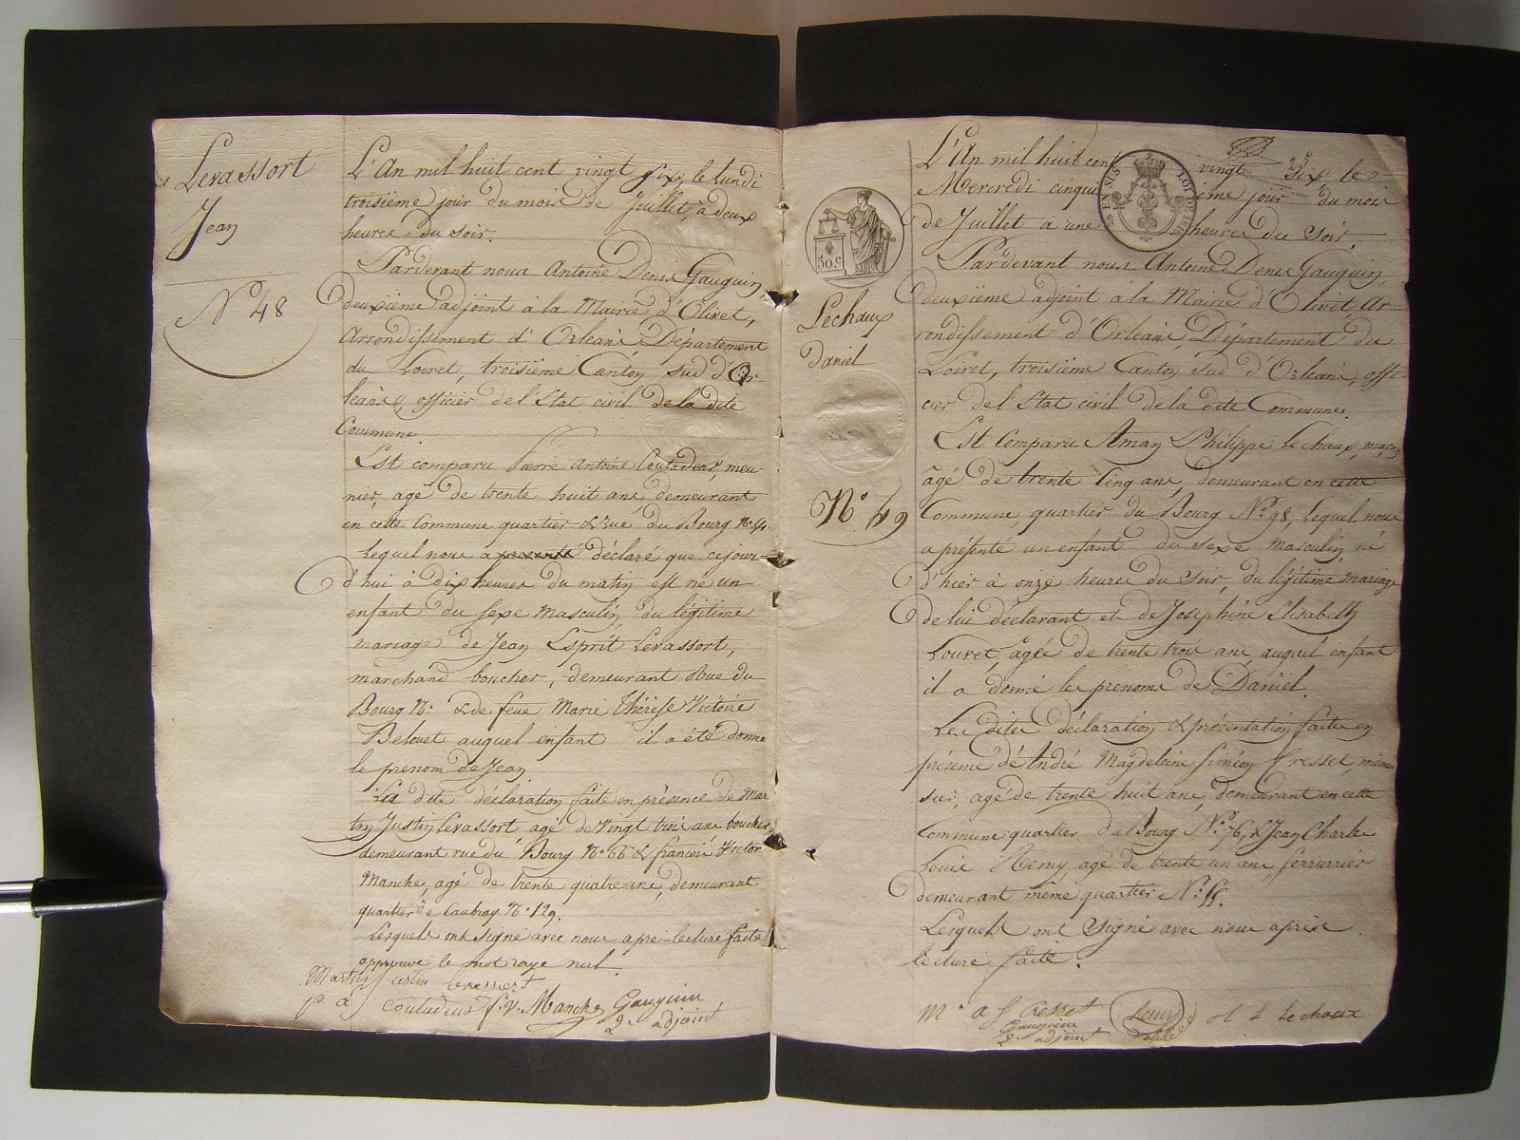 Levassort
Jean
N° 48
L'An mil huit cent vingt six, le lundi
troisième jour du mois de Juillet, à deux
heures du soir.
Pardevant nous Antoine Denis Gauguin,
deuxième adjoint à la Mairie d'Olivet,
Arrondissement d'Orléans Département
du Loiret, troisième Canton Sud d'Or-
léans, officier de l'Etat civil de la dite
Commune.
Est comparu Pierre Antoine Coutadeur, meu-
nier, agé de trente huit ans, demeurant
en cette Commune quartier & rue du Bourg N°
lequel nous a présenté déclaré que cejour-
d'hui à dix heures du matin est né un
enfant du sexe masculin du légitime
mariage de Jean Esprit Levassort,
marchand boucher, demeurant Rue du
Bourg N° & de feue Marie Thérèse Victoire
Belouet auquel enfant il a été donné
le prenom de Jean.
La dite déclaration faite en présence de Mar
tin Justin Levassort agé de vingt trois ans boucher
demeurant rue du Bourg N° 66 & françois Victor
Manche, agé de trente quatre ans, demeurant
quartier de Caubray N° 129.
Lesquels ont signé avec nous après lecture faite
approuvé le mot rayé nul.
Martin Justin Levassort
P A Coutadeur f. V. Manche Gauguin
2e adjoint
50 C
Lechaux
Daniel
N° 49
L'An mil huit cent vingt six le
Mercredi cinquième jour du mois
de Juillet à une heure du Soir.
Pardevant nous Antoine Denis Gauguin,
deuxième adjoint à la Mairie d'Olivet, Ar-
rondissement d'Orléans Département du
Loiret, troisième Canton Sud d'Orléans, offi-
cier de l'Etat civil de la dite Commune.
Est Comparu Aman Philippe Lechaux, maçon,
âgé de trente Cinq ans, demeurant en cette
Commune, quartier du Bourg N° 98, lequel nous
a présenté un enfant du sexe masculin né
d'hier à onze heures du soir, du légitime mariage
de lui déclarant et de Joséphine Elisabeth
Louvet âgée de trente trois ans, auquel enfant
il a donné les prenoms de Daniel.
Les dites déclaration & présentation faite en
présence d'André Magdeleine Siméon Cresset,
agé de trente huit ans, demeurant en cette
Commune quartier du Bourg N° 76, & Jean Charles
Louis Remy, agé de trente un ans, serrurier
demeurant même quartier N°
Lesquels ont signé avec nous après
lecture faite.
M. a S Cresset Louis Remy Lechaux
Gauguin
2e adjoint